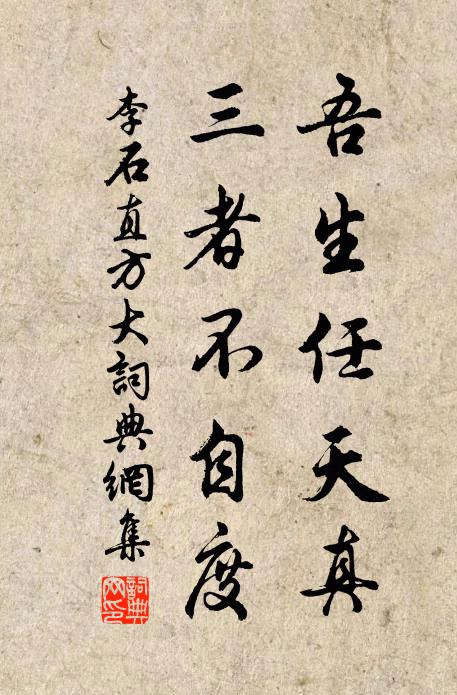 吾生任天真
三者不自度
李石直方大詞典網集
詞典网印